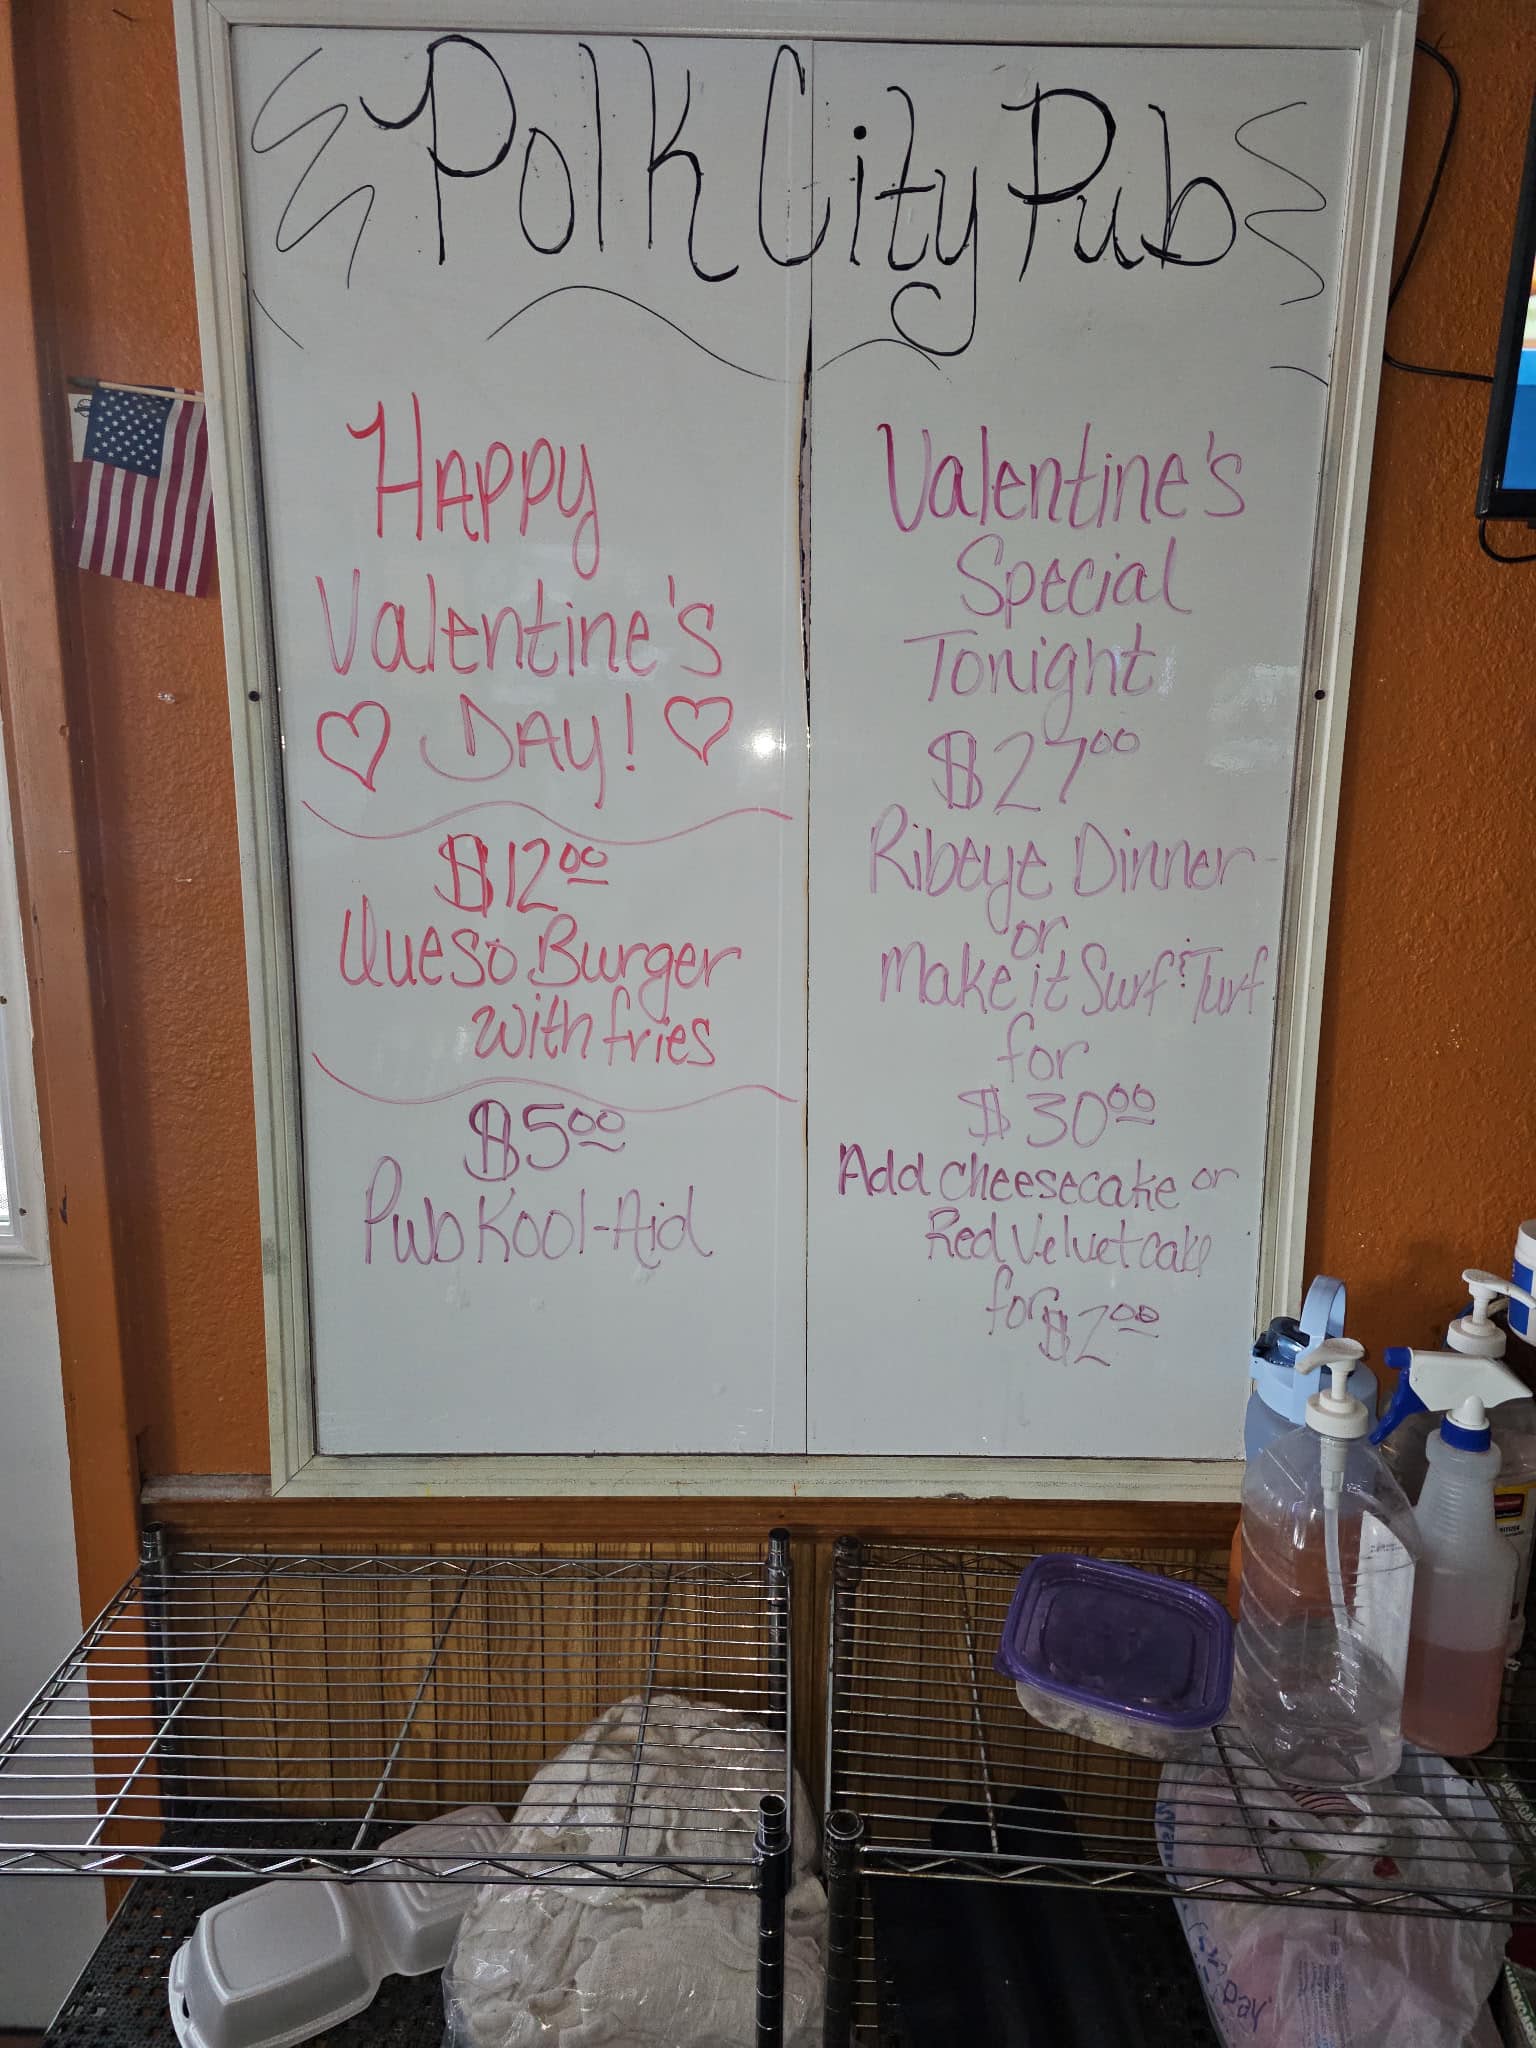 Polk City Pub
Happy
Valentine's
Day!
$12.00
Queso Burger
with fries
$5.00
Pub Kool-Aid
Valentine's
Special
Tonight
$27.00
Ribeye Dinner
or
Make it Surf & Turf
for
$30.00
Add cheesecake or
Red Velvet cake
for $2.00